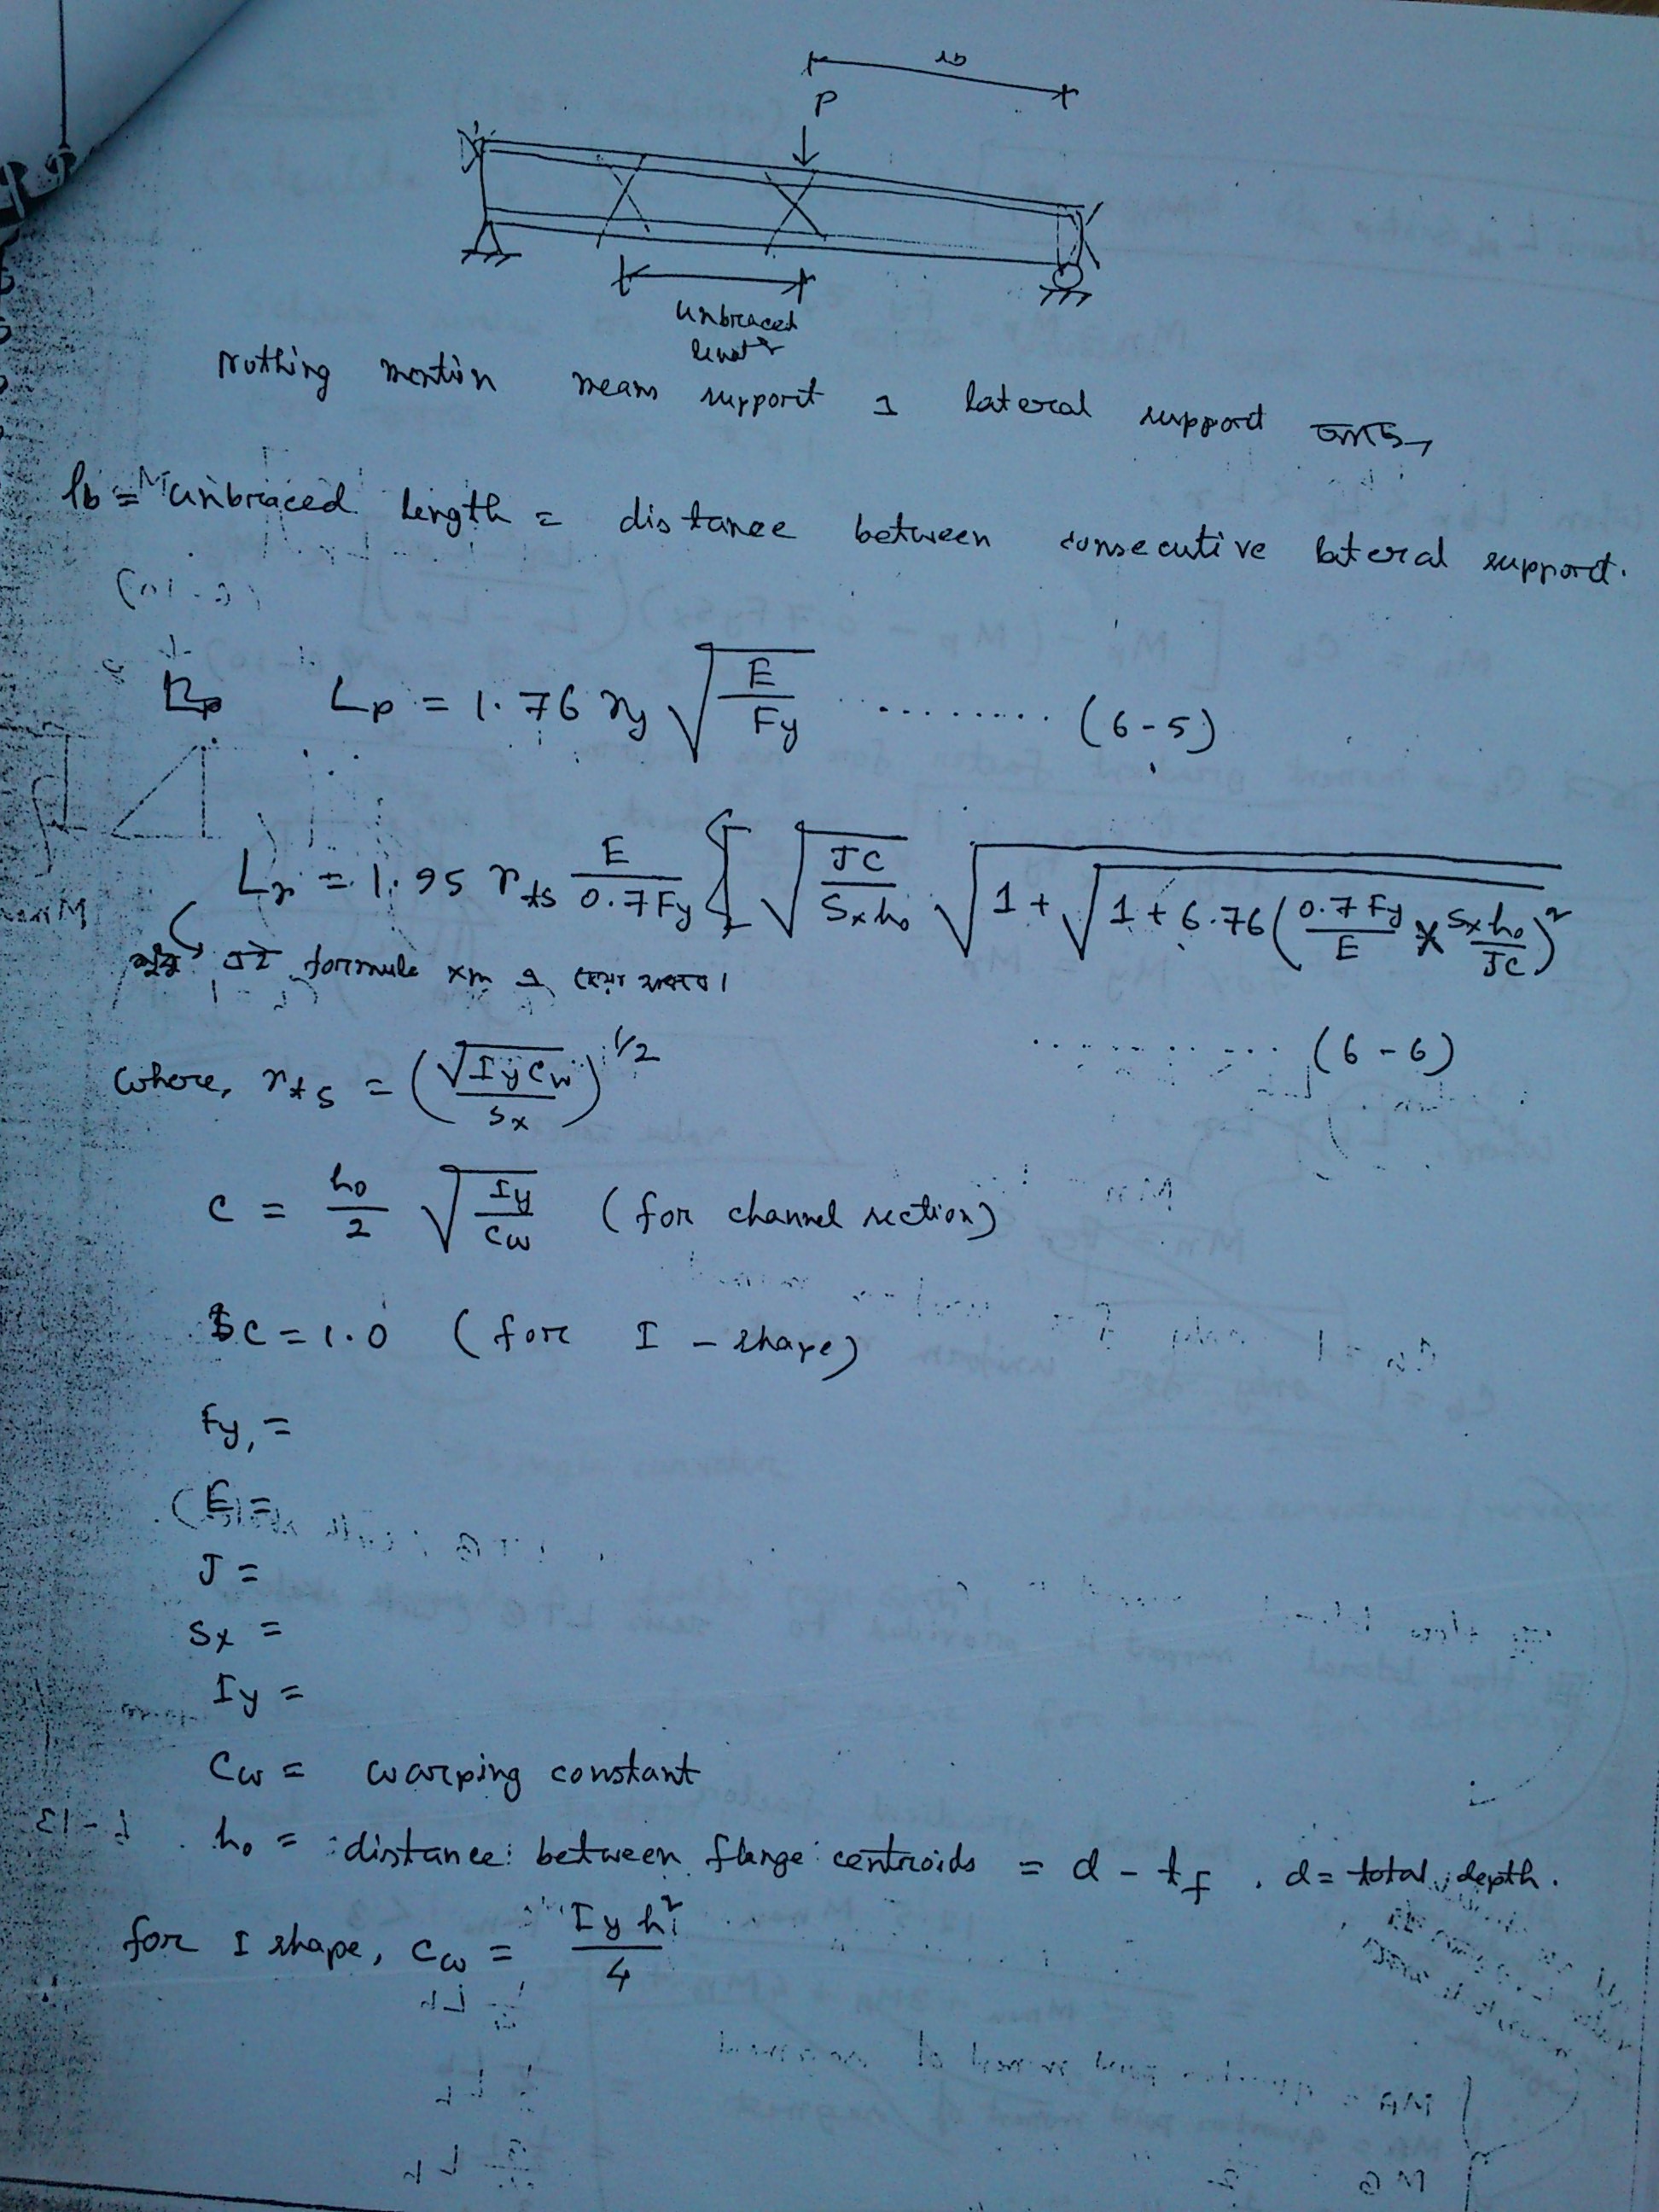 lb
P
unbraced
lenght
Nothing mention means support এ lateral support আছে,
lb = unbraced length = distance between consecutive lateral support.
Lp = 1.76 ry √(E/Fy) .......... (6-5)
Lr = 1.95 rts E/0.7Fy √(JC/Sxho) √(1+√(1+6.76(0.7Fy/E × Sxho/JC)²))
শুধু এই formula xm এ দেয়া থাকবে।
.......... (6-6)
where, rts = (√(IyCw)/Sx)^1/2
C = ho/2 √(Iy/Cw) (for channel section)
C = 1.0 (for I - shape)
Fy =
E =
J =
Sx =
Iy =
Cw = warping constant
ho = distance between flange centroids = d - tf , d = total depth.
for I shape, Cw = Iy h²/4